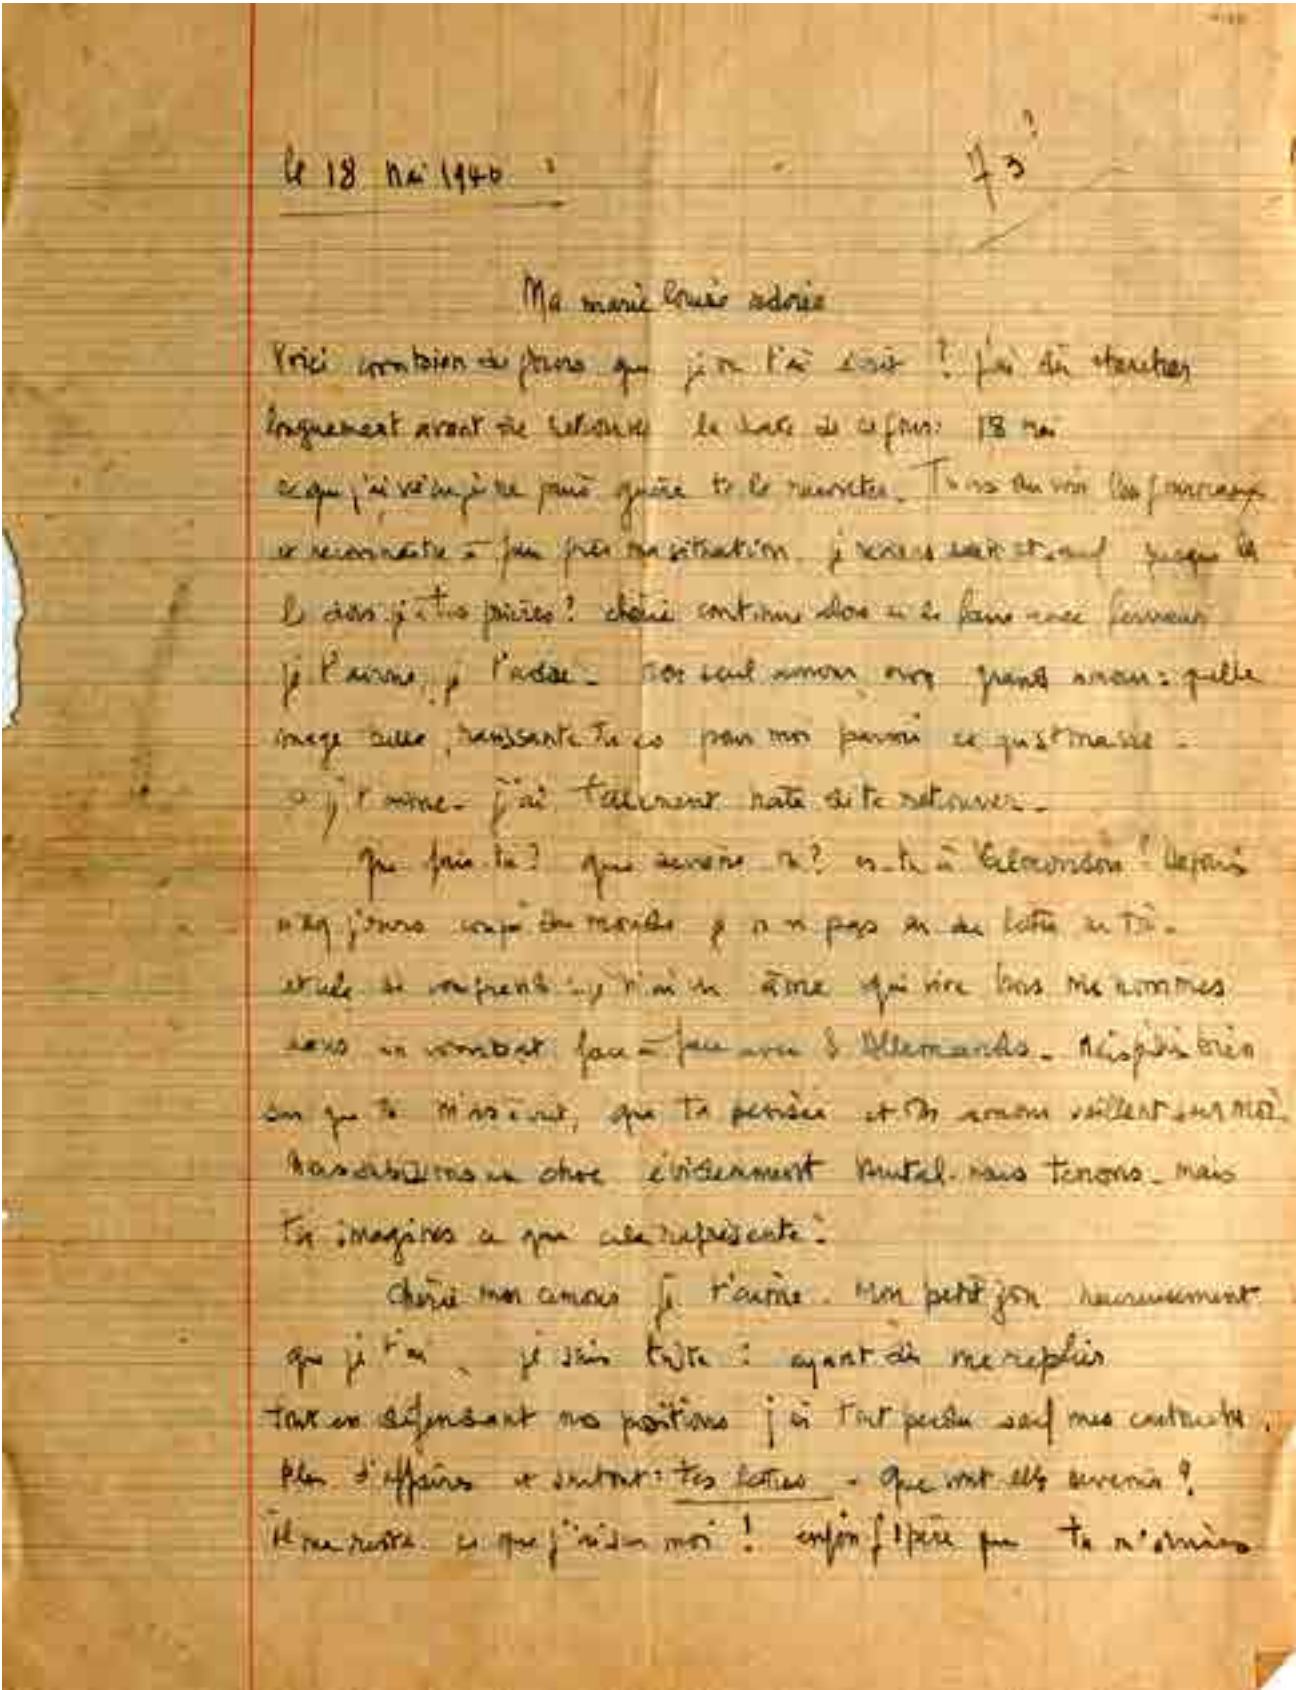 le 18 Mai 1940
73 ?
Ma marie louise adorée
Voici combien de jours que je ne t'ai écrit ? j'ai dû chercher
longuement avant de retrouver la date de ce jour : 18 mai
ce que j'ai vécu je ne puis guère te le raconter. Tu as dû voir les journaux
et reconnaître à peu près ma situation. je reviens sain et sauf jusque là
le dois-je à tes prières ? chérie continue alors à le faire avec ferveur
je t'aime, je t'adore - mon seul amour, mon grand amour : quelle
image belle, ravissante tu es pour moi parmi ce qui
je t'aime - j'ai tellement hâte de te retrouver -
Que fais-tu ? que deviens-tu ? es-tu à ? Depuis
cinq jours coupé du monde je n'ai pas eu de lettre de toi -
et cela se comprend : je n'ai vu âme qui vive hors mes hommes
dans un combat face à face avec les Allemands - Mais je suis bien
sûr que tu m'as écrit, que ta pensée et ton amour veillent sur moi.
Nous subissons un choc évidemment brutal - nous tenons - mais
tu imagines ce que cela représente.
Chérie mon amour je t'aime. Mon petit heureusement
que je t'ai je suis triste : ayant dû me replier
tout en défendant nos positions j'ai tout perdu sauf mes
Plus d'affaires et surtout : tes lettres - Que vont elles devenir ?
il me reste ce que j'ai sur moi ! enfin j'espère que tu m'